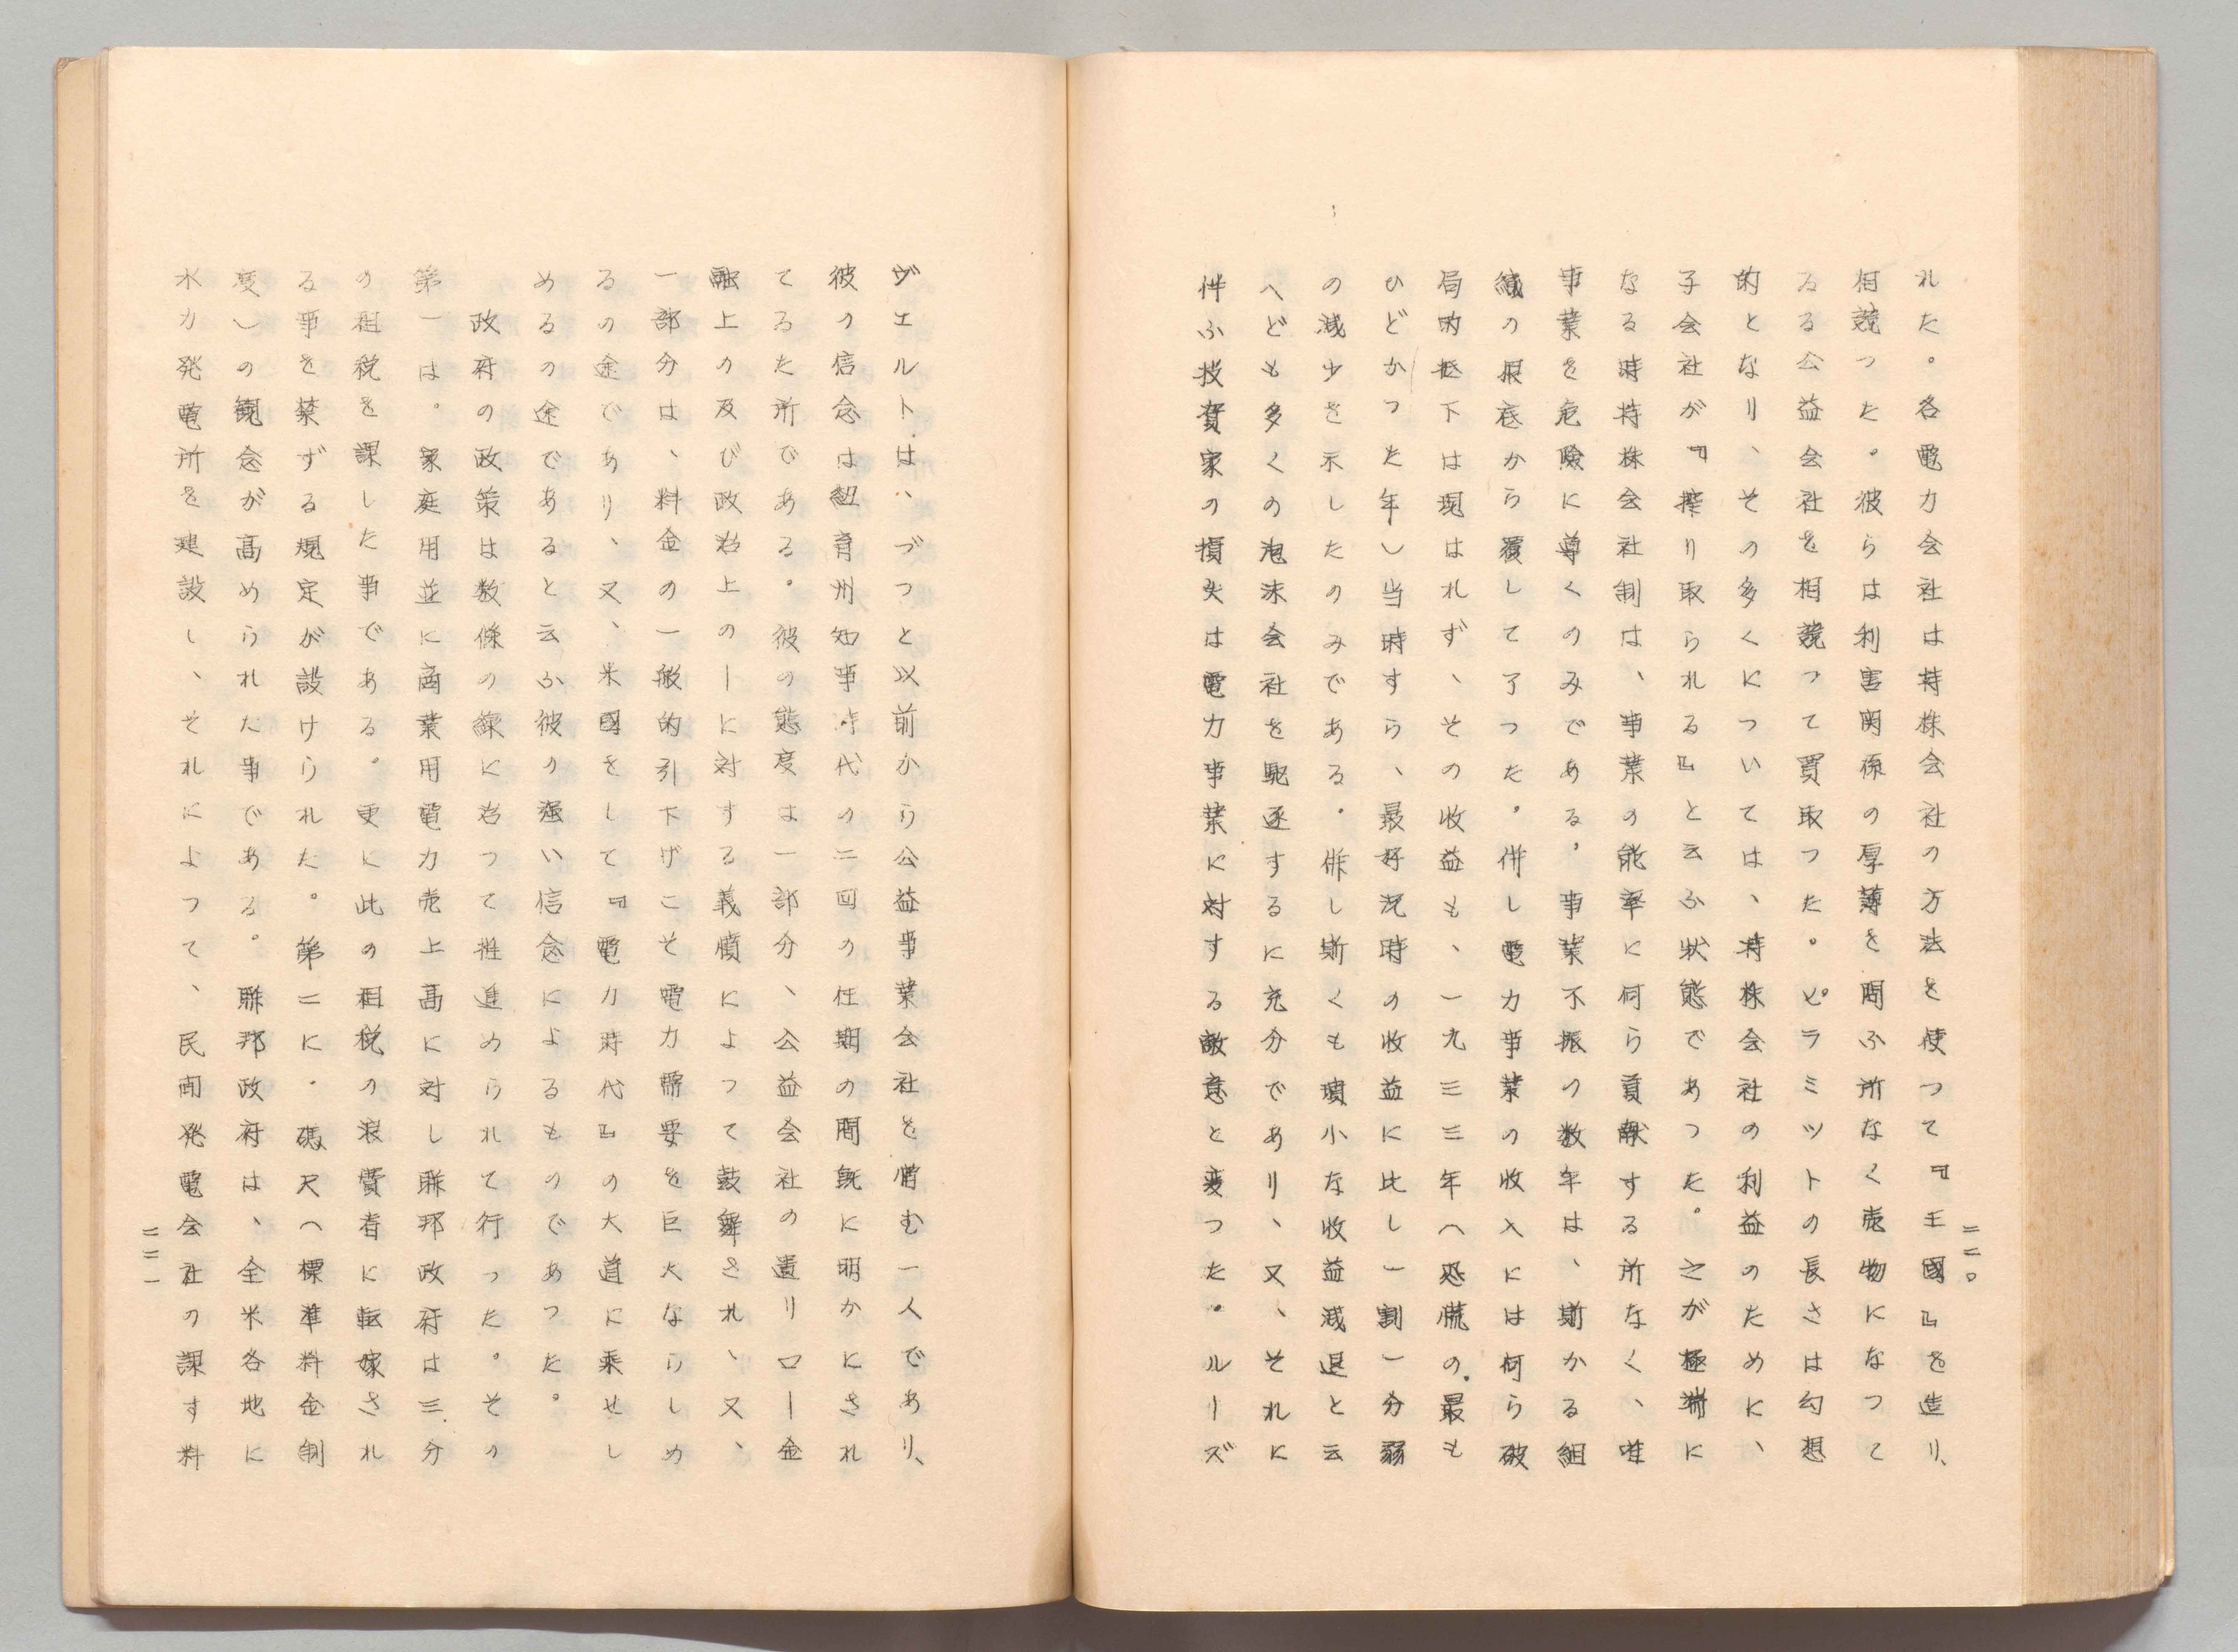 れた。各電力会社は持株会社の方法を使つて『王國』を造り、
相競つた。彼らは利害関係の厚薄を問ふ所なく売物になつて
ゐる公益会社を相競つて買取つた。ピラミツトの長さは幻想
的となり、その多くについては、持株会社の利益のために、
子会社が『搾り取られる』と云ふ状態であつた。之が極端に
なる時持株会社制は、事業の能率に何ら貢献する所なく、唯
事業を危険に導くのみである，事業不振の数年は、斯かる組
織の根底から覆して了つた。併し電力事業の收入には何ら破
局的低下は現はれず、その收益も、一九三三年（恐慌の最も
ひどかつた年）当時すら、最好況時の收益に比し一割一分弱
の減少を示したのみである．併し斯くも瑣小な收益減退と云
へども多くの泡沫会社を駆逐するに充分であり、又、それに
伴ふ投資家の損失は電力事業に対する敵意と変つた．ルーズ
二二〇
ヴエルトは、づつと以前から公益事業会社を憎む一人であり、
彼の信念は紐育州知事時代の二回の任期の間既に明かにされ
てゐた所である。彼の態度は一部分、公益会社の遣り口ー金
融上の及び政治上のーに対する義憤によつて鼓舞され、又、
一部分は、料金の一般的引下げこそ電力需要を巨大ならしめ
るの途であり、又、米國をして『電力時代』の大道に乗せし
めるの途であると云ふ彼の強い信念によるものであつた。
政府の政策は数條の線に沿つて推進められて行つた。その
第一は。家庭用並に商業用電力売上高に対し聯邦政府は三分
の租税を課した事である。更に此の租税の浪費者に転嫁され
る事を禁ずる規定が設けられた。第二に．碼尺（標準料金制
度）の観念が高められた事である。聯邦政府は、全米各地に
水力発電所を建設し、それによつて、民間発電会社の課す料
二二一